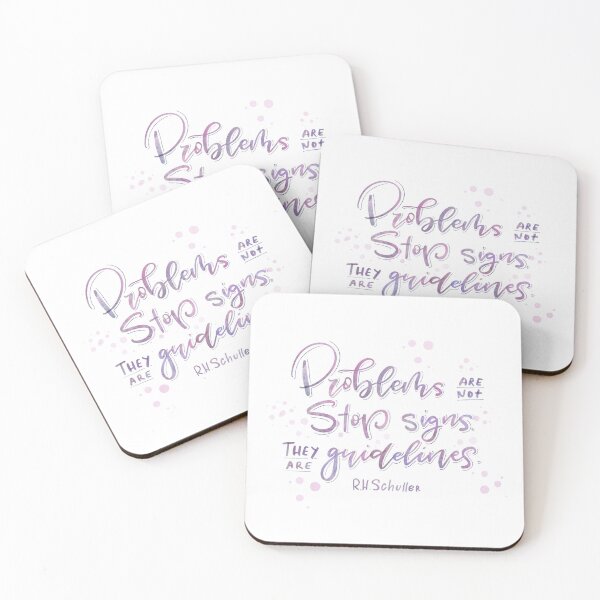 Problems ARE NOT
signs
Problems ARE NOT
Stop signs.
THEY ARE guidelines
Problems ARE NOT
Stop signs.
THEY ARE
RHSchuller
Problems ARE NOT
Stop signs.
THEY ARE guidelines
RHSchuller